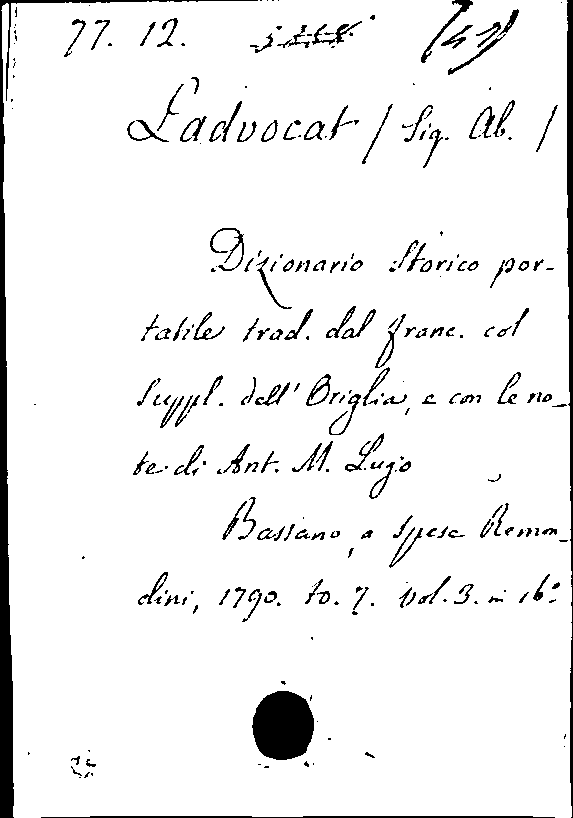 77. 12.
Ladvocat / Sig. Ab. /
Dizionario Storico por-
tatile trad. dal franc. col
Suppl. dell' Origlia, e con le no-
te di Ant. M. Lugo
Bassano, a spese Remon-
dini, 1790. to. 7. vol. 3. in 16.º